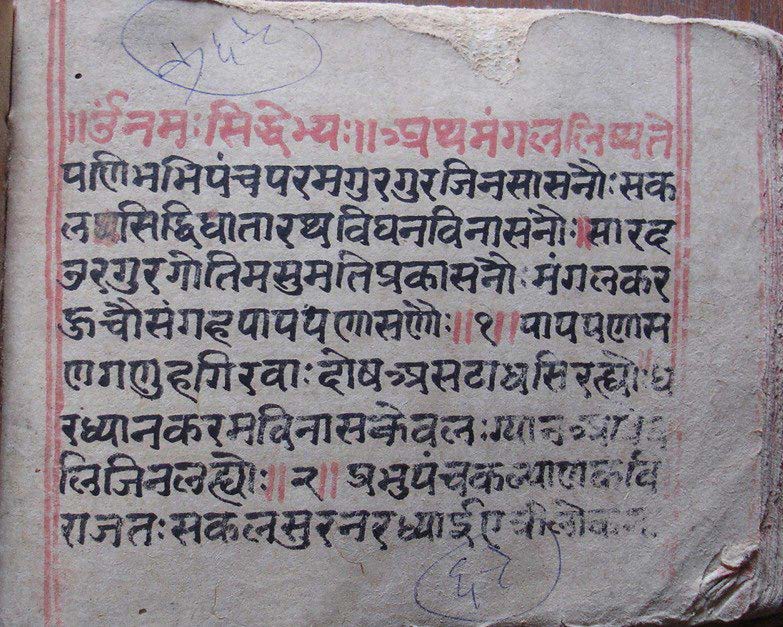 ॥ॐनमःसिद्धेभ्यः॥अथमंगललिष्यते
पणमिभिपंचपरमगुरगुरजिनसासनौः सक
लसिद्धिदातारथविघनविनासनौः॥सारद
अरगुरगोतिमसुमतिप्रकासनौः मंगलकर
ऊचौसंगहपापपणासणौः॥१॥पापपणास
णगणुहगिरवाः दोषअष्टादधसिरह्यौः॥ध
रध्यानकरमविनासकेवलःग्यान
लिजिनलह्यौः॥२॥प्रभुपंचकल्याणकवि
राजतःसकलसुरनरध्याईए
६५२
६२